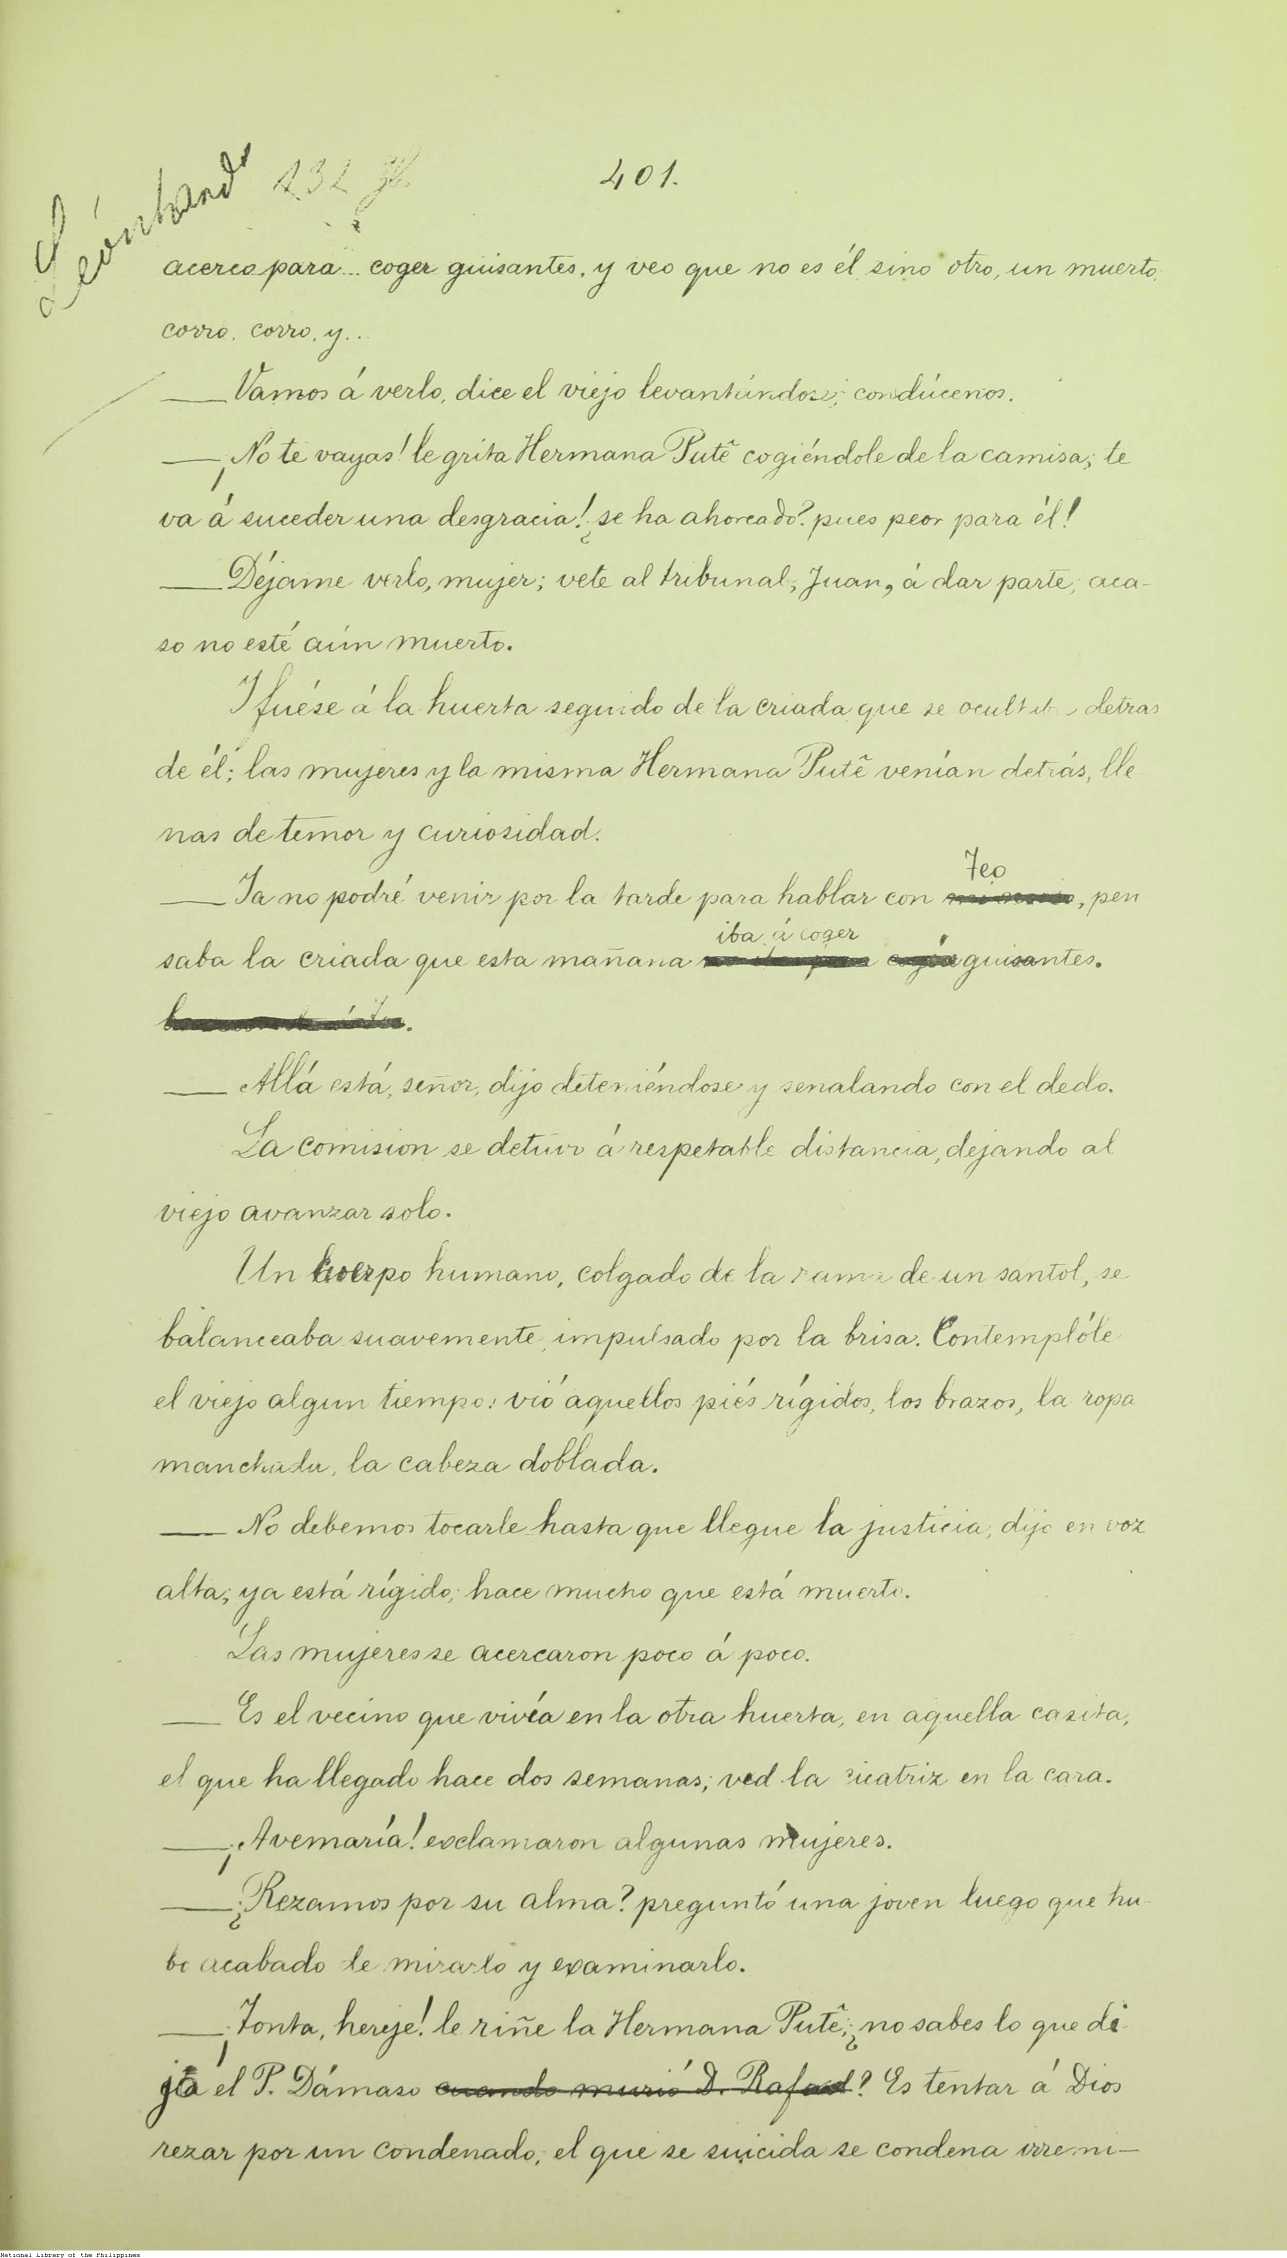 401.
Leónhard
acerco para... coger guisantes, y veo que no es él sino otro, un muerto,
corro, corro, y...
— Vamos á verlo, dice el viejo levantándose; condúcenos.
— ¡No te vayas! le grita Hermana Putê cogiéndole de la camisa; te
va á suceder una desgracia! ¿se ha ahorcado? pues peor para él!
— Déjame verlo, mujer; vete al tribunal, Juan, á dar parte; aca-
so no esté aún muerto.
Y fuése á la huerta seguido de la criada que se ocultaba detras
de él; las mujeres y la misma Hermana Putê venían detrás, lle
nas de temor y curiosidad.
Teo
— Ya no podré venir por la tarde para hablar con , pen
iba á coger
saba la criada que esta mañana cogía guisantes.
— Allá está, señor, dijo deteniéndose y senalando con el dedo.
La comision se detuvo á respetable distancia, dejando al
viejo avanzar solo.
Un cuerpo humano, colgado de la rama de un santol, se
balanceaba suavemente, impulsado por la brisa. Contemplóle
el viejo algun tiempo: vió aquellos piés rígidos, los brazos, la ropa
manchada, la cabeza doblada.
— No debemos tocarle hasta que llegue la justicia, dijo en voz
alta; ya está rígido; hace mucho que está muerto.
Las mujeres se acercaron poco á poco.
— Es el vecino que vivía en la otra huerta, en aquella casita,
el que ha llegado hace dos semanas; ved la cicatriz en la cara.
— ¡Avemaría! exclamaron algunas mujeres.
— ¿Rezamos por su alma? preguntó una joven luego que hu-
bo acabado de mirarlo y examinarlo.
— ¡Tonta, hereje! le riñe la Hermana Putê; ¿no sabes lo que di
jo el P. Dámaso cuando murió D. Rafael? Es tentar á Dios
rezar por un condenado; el que se suicida se condena irremi-
National Library of the Philippines